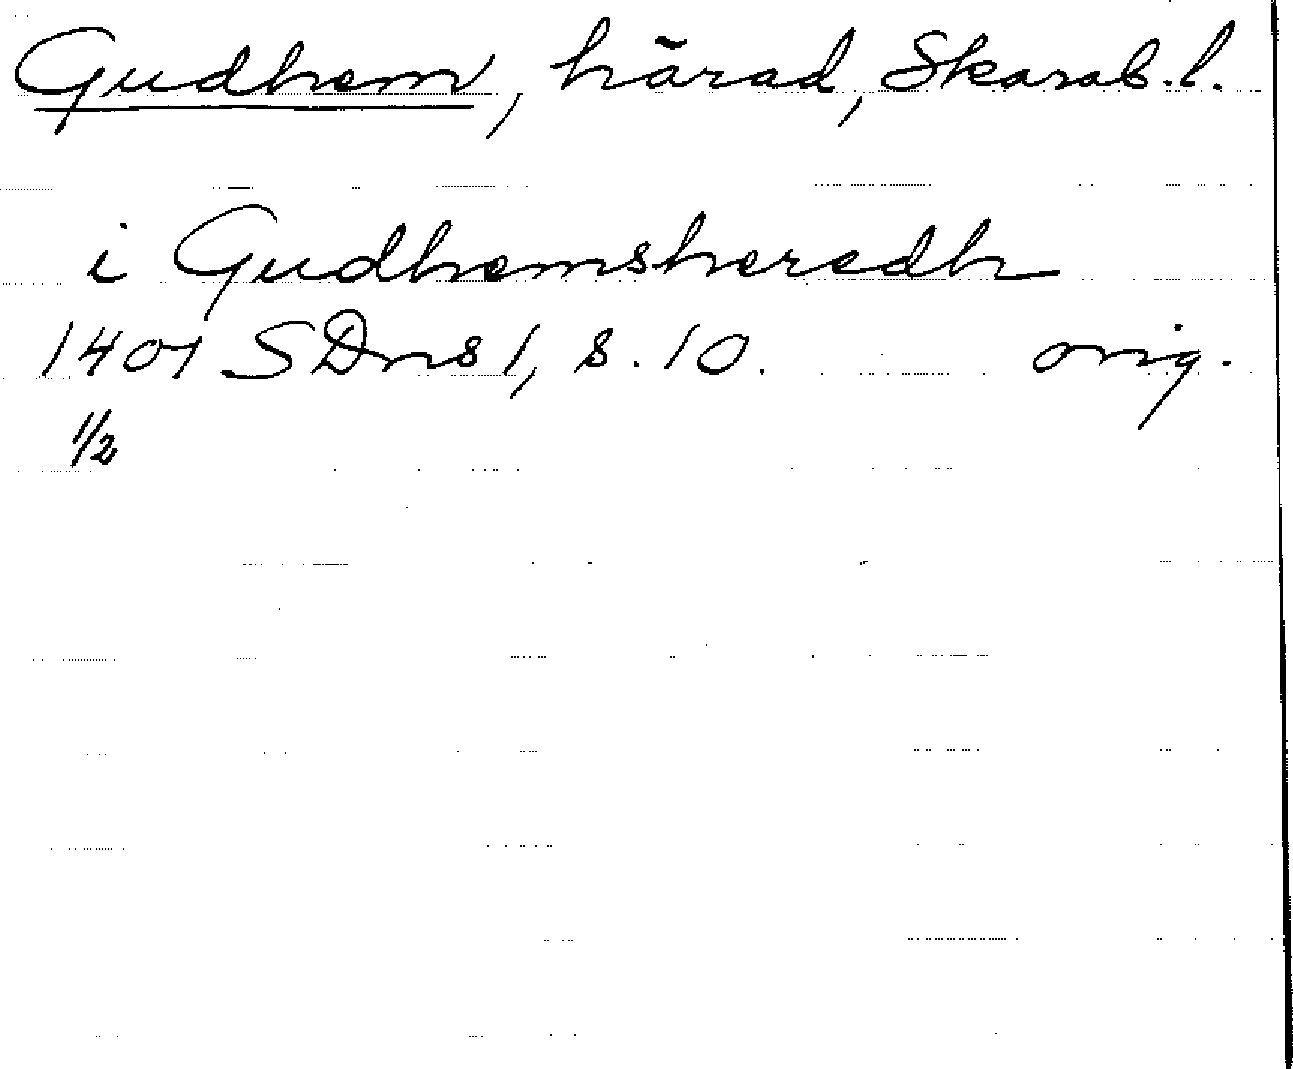 Gudhem, härad, Skarab.l.
i Gudhemsheredh
1401 SDns 1, s. 10. orig.
1/2